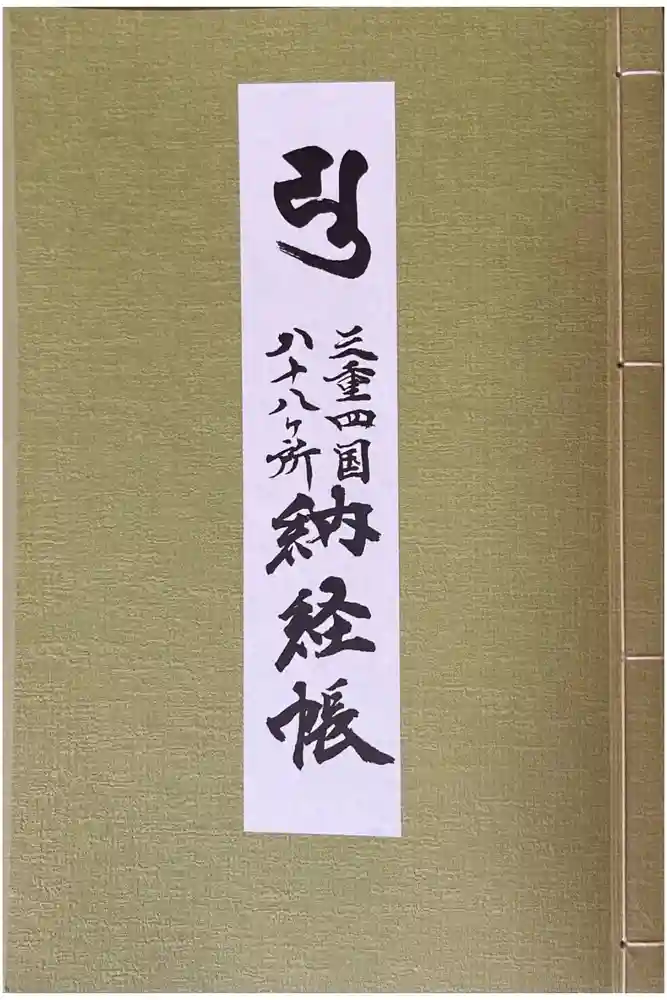 𑖧𑖲
三重四国
八十八ヶ所
納経帳